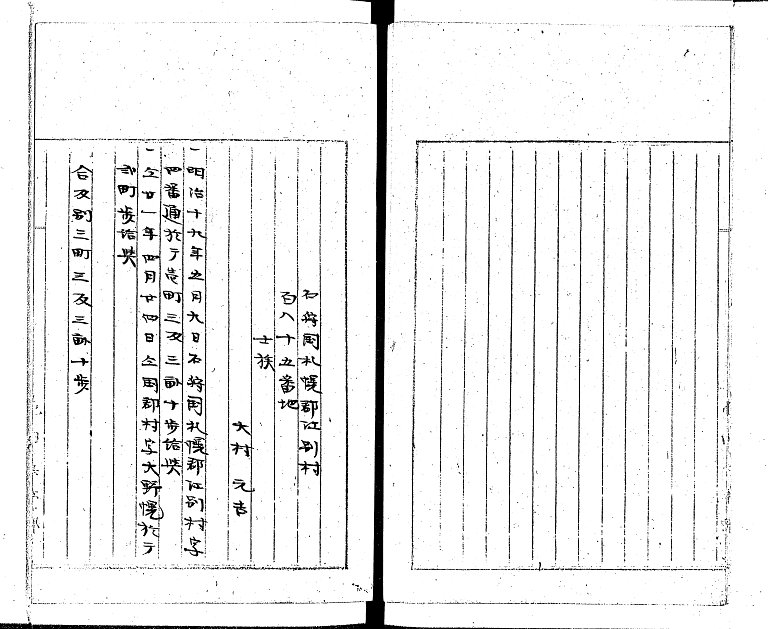 石狩国札幌郡江別村
百八十五番地
士族
大村 元吉
一 明治十九年五月九日石狩国札幌郡江別村字
四番通於テ壱町三反三畝十歩給与
一 仝廿一年四月廿四日仝国郡村字大野幌於テ
弐町歩給与
合反別三町三反三畝十歩